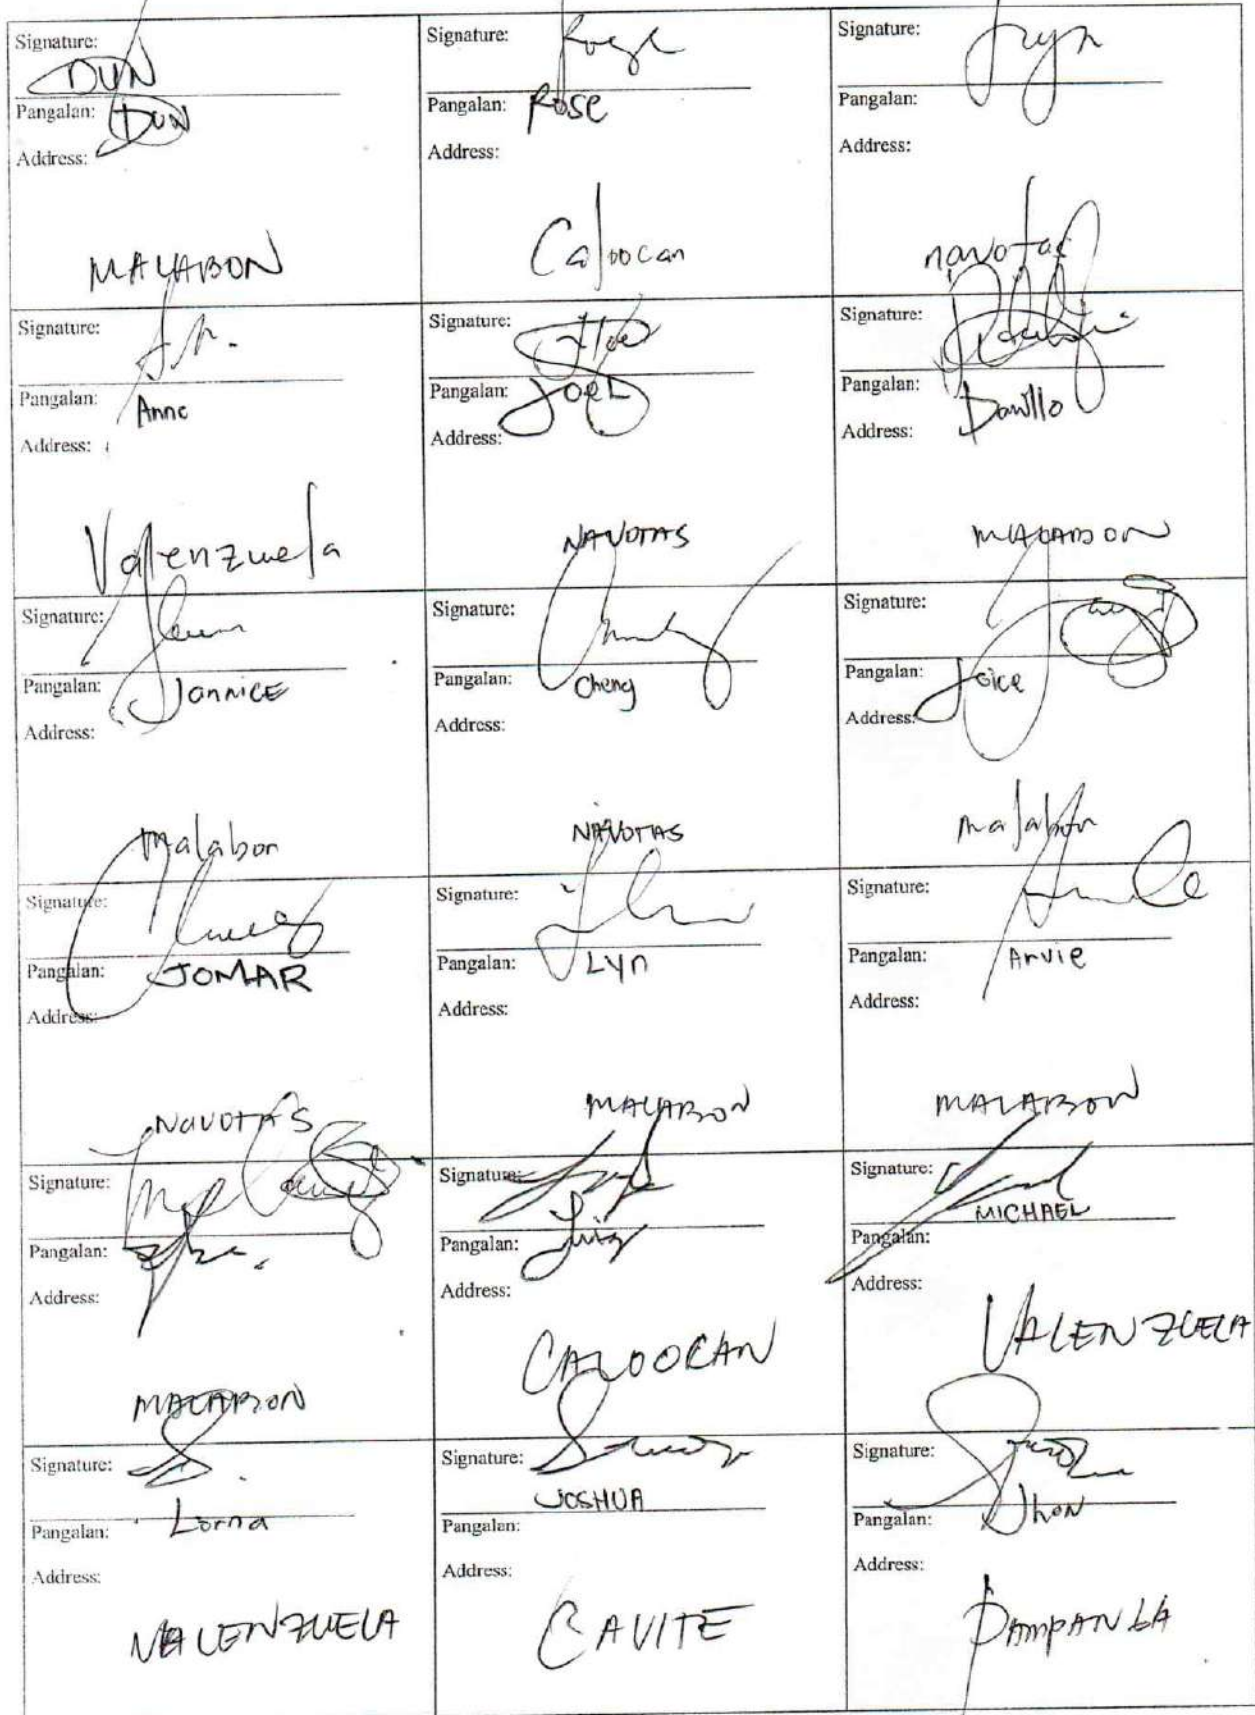 Signature:
DUN
Pangalan: DUN
Address:
MALABON
Signature:
Pangalan: ROSE
Address:
Caloocan
Signature:
Pangalan:
Address:
navotas
Signature:
Pangalan: Anne
Address:
Valenzuela
Signature:
Pangalan: JOEL
Address:
NAVOTAS
Signature:
Pangalan: Danillo
Address:
MALABON
Signature:
Pangalan: JANNICE
Address:
Malabon
Signature:
Pangalan: Cheng
Address:
NAVOTAS
Signature:
Pangalan: Joice
Address:
malabon
Signature:
Pangalan: JOMAR
Address:
NAVOTAS
Signature:
Pangalan: Lyn
Address:
MALABON
Signature:
Pangalan: Arvie
Address:
MALABON
Signature:
Pangalan:
Address:
MALABON
Signature:
Pangalan:
Address:
CALOOCAN
Signature:
MICHAEL
Pangalan:
Address:
VALENZUELA
Signature:
Lorna
Pangalan:
Address:
VALENZUELA
Signature:
JOSHUA
Pangalan:
Address:
CAVITE
Signature:
Pangalan: Jhon
Address:
PAMPANGA